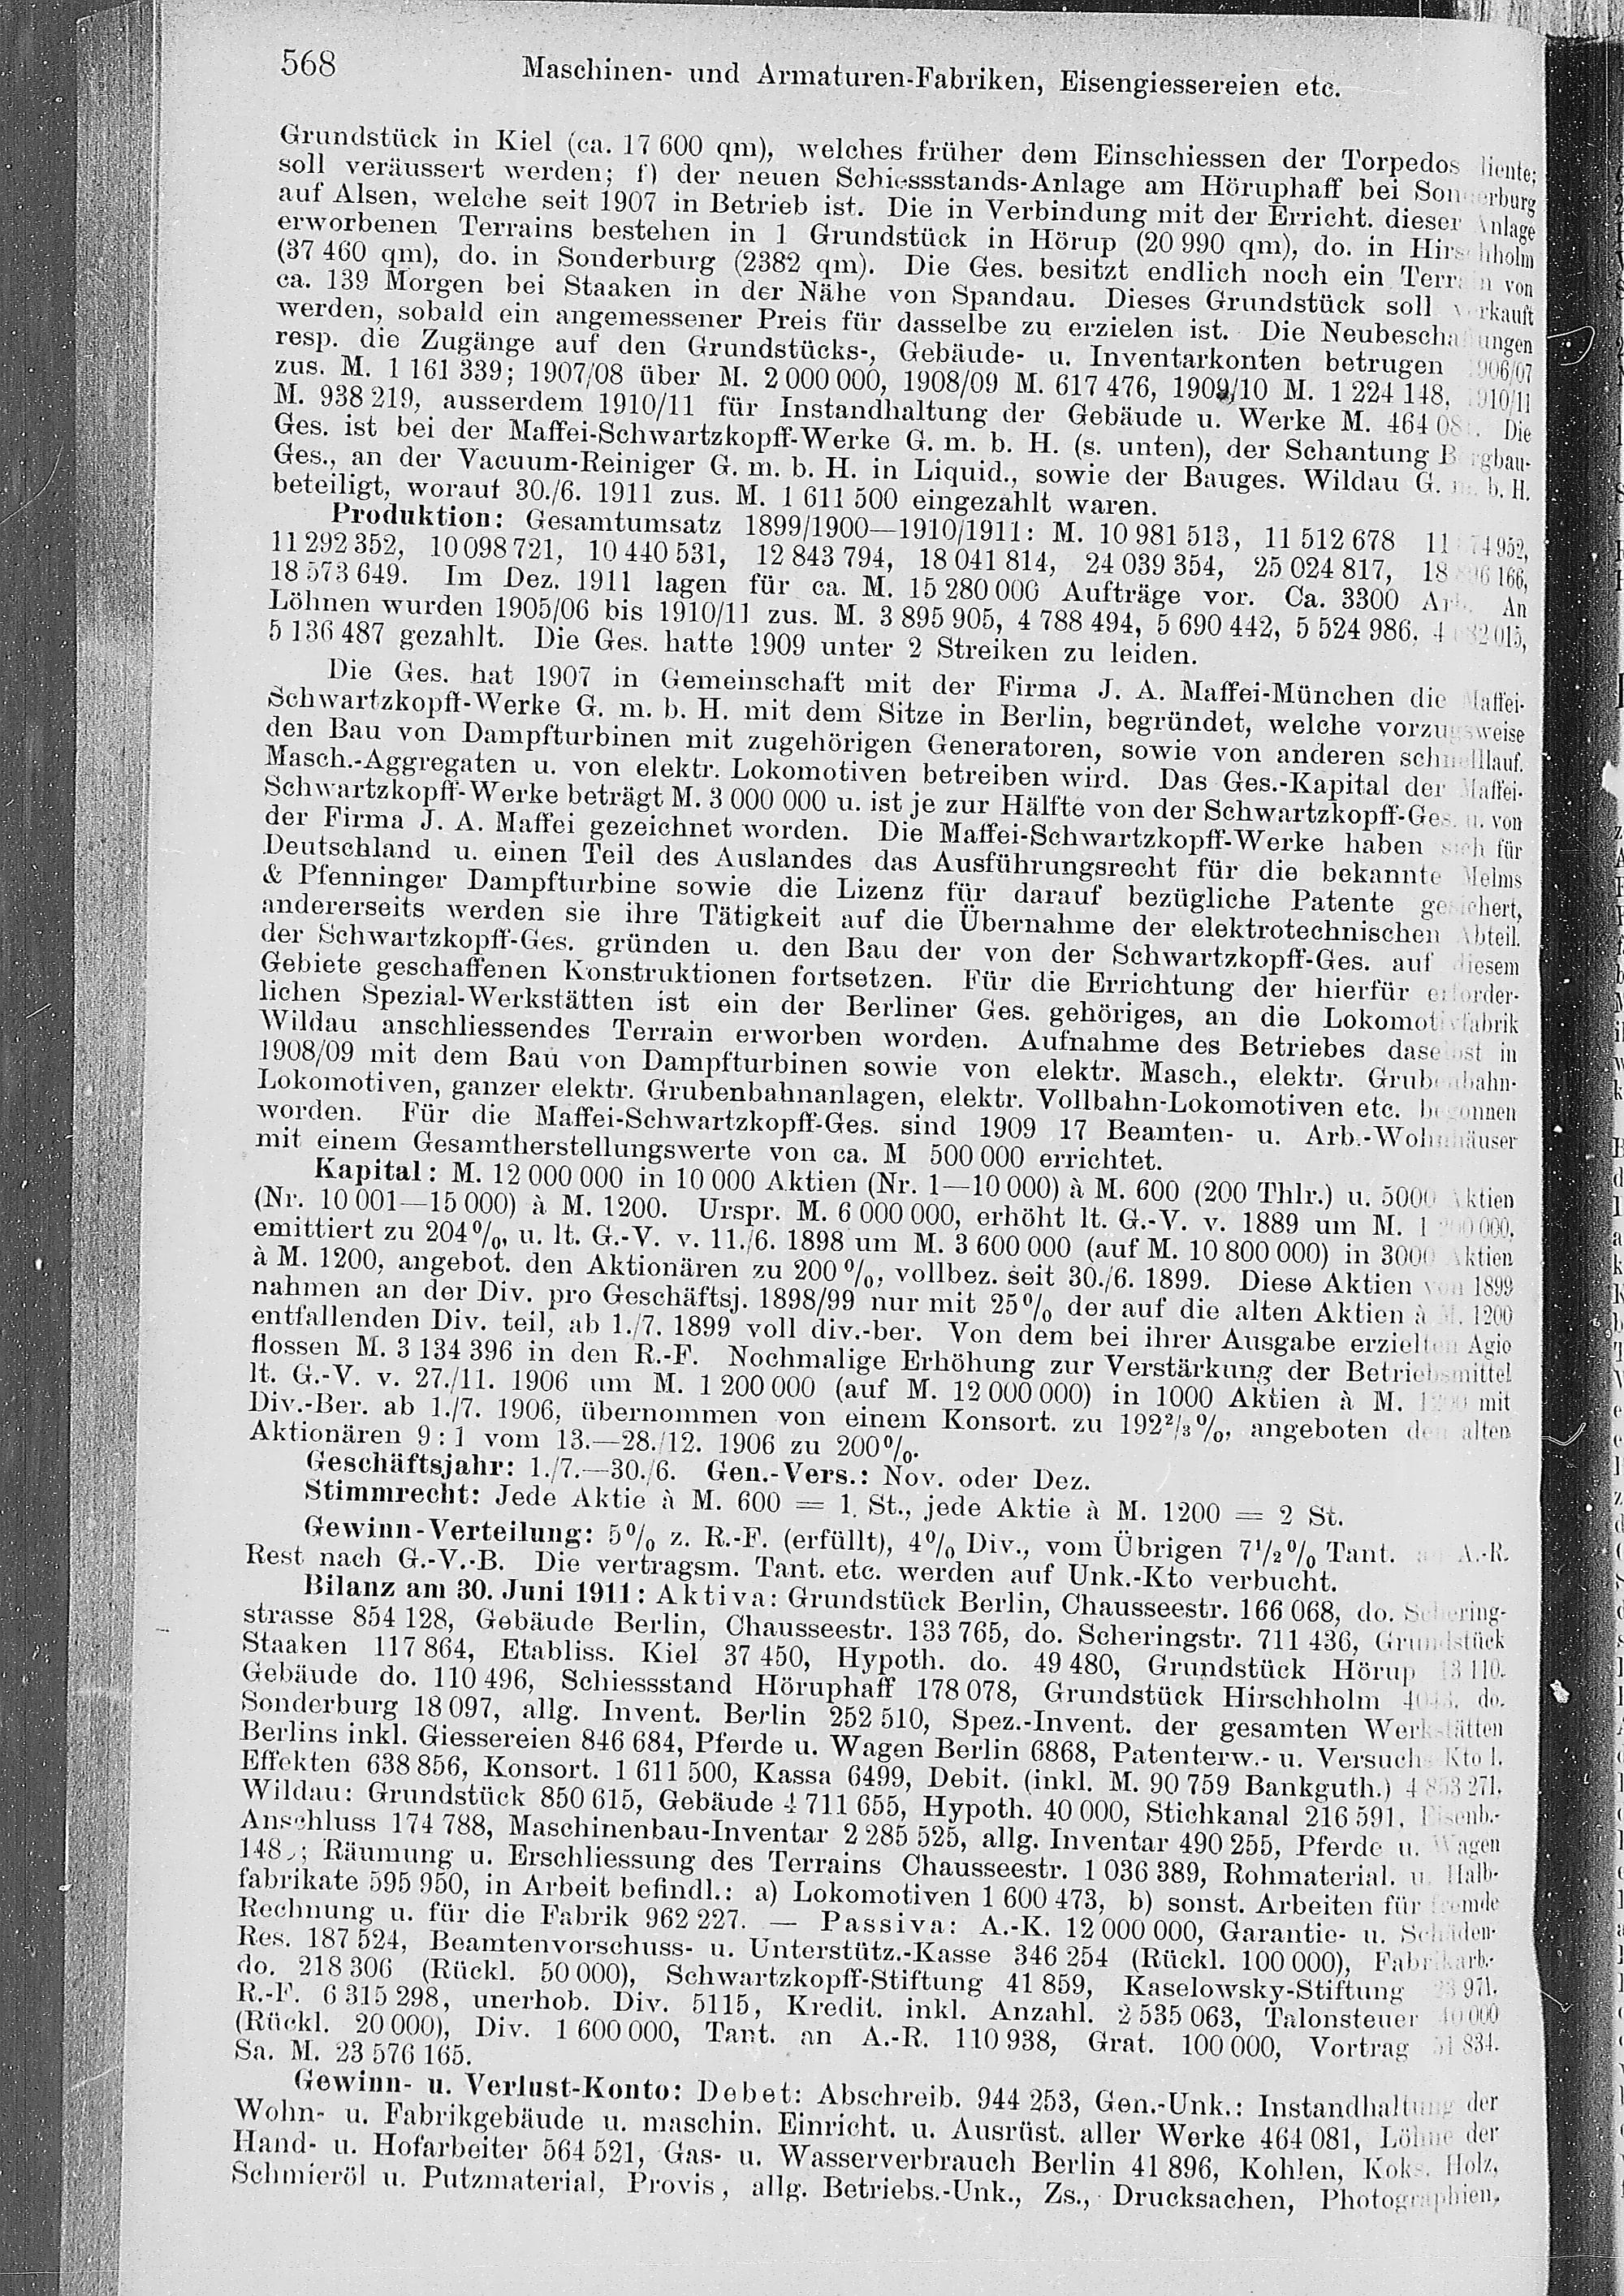 568 Maschinen- und Armaturen-Fabriken, Eisengiessereien etc.
Grundstück in Kiel (ca. 17 600 qm), welches früher dem Einschiessen der Torpedos diente;
soll veräussert werden; f) der neuen Schiessstands-Anlage am Höruphaff bei Sonderburg
auf Alsen, welche seit 1907 in Betrieb ist. Die in Verbindung mit der Erricht. dieser Anlage
erworbenen Terrains bestehen in 1 Grundstück in Hörup (20 990 qm), do. in Hirschholm
(37 460 qm), do. in Sonderburg (2382 qm). Die Ges. besitzt endlich noch ein Terrain von
ca. 139 Morgen bei Staaken in der Nähe von Spandau. Dieses Grundstück soll verkauft
werden, sobald ein angemessener Preis für dasselbe zu erzielen ist. Die Neubeschaffungen
resp. die Zugänge auf den Grundstücks-, Gebäude- u. Inventarkonten betrugen 1906/07
zus. M. 1 161 339; 1907/08 über M. 2 000 000, 1908/09 M. 617 476, 1909/10 M. 1 224 148, 1910/11
M. 938 219, ausserdem 1910/11 für Instandhaltung der Gebäude u. Werke M. 464 081. Die
Ges. ist bei der Maffei-Schwartzkopff-Werke G. m. b. H. (s. unten), der Schantung Bergbau-
Ges., an der Vacuum-Reiniger G. m. b. H. in Liquid., sowie der Bauges. Wildau G. m. b. H.
beteiligt, worauf 30./6. 1911 zus. M. 1 611 500 eingezahlt waren.
Produktion: Gesamtumsatz 1899/1900—1910/1911: M. 10 981 513, 11 512 678
11 292 352, 10 098 721, 10 440 531, 12 843 794, 18 041 814, 24 039 354, 25 024 817,
18 573 649. Im Dez. 1911 lagen für ca. M. 15 280 000 Aufträge vor. Ca. 3300 Arb. An
Löhnen wurden 1905/06 bis 1910/11 zus. M. 3 895 905, 4 788 494, 5 690 442, 5 524 986,
5 136 487 gezahlt. Die Ges. hatte 1909 unter 2 Streiken zu leiden.
Die Ges. hat 1907 in Gemeinschaft mit der Firma J. A. Maffei-München die Maffei-
Schwartzkopff-Werke G. m. b. H. mit dem Sitze in Berlin, begründet, welche vorzugsweise
den Bau von Dampfturbinen mit zugehörigen Generatoren, sowie von anderen schnelllauf.
Masch.-Aggregaten u. von elektr. Lokomotiven betreiben wird. Das Ges.-Kapital der Maffei-
Schwartzkopff-Werke beträgt M. 3 000 000 u. ist je zur Hälfte von der Schwartzkopff-Ges. u. von
der Firma J. A. Maffei gezeichnet worden. Die Maffei-Schwartzkopff-Werke haben sich für
Deutschland u. einen Teil des Auslandes das Ausführungsrecht für die bekannte Melms
& Pfenninger Dampfturbine sowie die Lizenz für darauf bezügliche Patente gesichert,
andererseits werden sie ihre Tätigkeit auf die Übernahme der elektrotechnischen Abteil.
der Schwartzkopff-Ges. gründen u. den Bau der von der Schwartzkopff-Ges. auf diesem
Gebiete geschaffenen Konstruktionen fortsetzen. Für die Errichtung der hierfür erforder-
lichen Spezial-Werkstätten ist ein der Berliner Ges. gehöriges, an die Lokomotivfabrik
Wildau anschliessendes Terrain erworben worden. Aufnahme des Betriebes daselbst in
1908/09 mit dem Bau von Dampfturbinen sowie von elektr. Masch., elektr. Grubenbahn-
Lokomotiven, ganzer elektr. Grubenbahnanlagen, elektr. Vollbahn-Lokomotiven etc. begonnen
worden. Für die Maffei-Schwartzkopff-Ges. sind 1909 17 Beamten- u. Arb.-Wohnhäuser
mit einem Gesamtherstellungswerte von ca. M 500 000 errichtet.
Kapital: M. 12 000 000 in 10 000 Aktien (Nr. 1—10 000) à M. 600 (200 Thlr.) u. 5000 Aktien
(Nr. 10 001—15 000) à M. 1200. Urspr. M. 6 000 000, erhöht lt. G.-V. v. 1889 um M. 1 200 000,
emittiert zu 204%, u. lt. G.-V. v. 11./6. 1898 um M. 3 600 000 (auf M. 10 800 000) in 3000 Aktien
à M. 1200, angebot. den Aktionären zu 200%, vollbez. seit 30./6. 1899. Diese Aktien von 1899
nahmen an der Div. pro Geschäftsj. 1898/99 nur mit 25% der auf die alten Aktien à M. 1200
entfallenden Div. teil, ab 1./7. 1899 voll div.-ber. Von dem bei ihrer Ausgabe erzielten Agio
flossen M. 3 134 396 in den R.-F. Nochmalige Erhöhung zur Verstärkung der Betriebsmittel
lt. G.-V. v. 27./11. 1906 um M. 1 200 000 (auf M. 12 000 000) in 1000 Aktien à M. 1200 mit
Div.-Ber. ab 1./7. 1906, übernommen von einem Konsort. zu 192²/₃%, angeboten den alten
Aktionären 9 : 1 vom 13.—28./12. 1906 zu 200%.
Geschäftsjahr: 1./7.—30./6. Gen.-Vers.: Nov. oder Dez.
Stimmrecht: Jede Aktie à M. 600 = 1 St., jede Aktie à M. 1200 = 2 St.
Gewinn-Verteilung: 5% z. R.-F. (erfüllt), 4% Div., vom Übrigen 7¹/₂% Tant. an A.-R.
Rest nach G.-V.-B. Die vertragsm. Tant. etc. werden auf Unk.-Kto verbucht.
Bilanz am 30. Juni 1911: Aktiva: Grundstück Berlin, Chausseestr. 166 068, do. Schering-
strasse 854 128, Gebäude Berlin, Chausseestr. 133 765, do. Scheringstr. 711 436, Grundstück
Staaken 117 864, Etabliss. Kiel 37 450, Hypoth. do. 49 480, Grundstück Hörup 13 110,
Gebäude do. 110 496, Schiessstand Höruphaff 178 078, Grundstück Hirschholm do.
Sonderburg 18 097, allg. Invent. Berlin 252 510, Spez.-Invent. der gesamten Werkstätten
Berlins inkl. Giessereien 846 684, Pferde u. Wagen Berlin 6868, Patenterw.- u. Versuchs-Kto 1,
Effekten 638 856, Konsort. 1 611 500, Kassa 6499, Debit. (inkl. M. 90 759 Bankguth.) 4 853 271,
Wildau: Grundstück 850 615, Gebäude 4 711 655, Hypoth. 40 000, Stichkanal 216 591, Eisenb.-
Anschluss 174 788, Maschinenbau-Inventar 2 285 525, allg. Inventar 490 255, Pferde u. Wagen
Räumung u. Erschliessung des Terrains Chausseestr. 1 036 389, Rohmaterial. u. Halb-
fabrikate 595 950, in Arbeit befindl.: a) Lokomotiven 1 600 473, b) sonst. Arbeiten für fremde
Rechnung u. für die Fabrik 962 227. — Passiva: A.-K. 12 000 000, Garantie- u. Schäden-
Res. 187 524, Beamtenvorschuss- u. Unterstütz.-Kasse 346 254 (Rückl. 100 000), Fabrikarb.-
do. 218 306 (Rückl. 50 000), Schwartzkopff-Stiftung 41 859, Kaselowsky-Stiftung 23 971,
R.-F. 6 315 298, unerhob. Div. 5115, Kredit. inkl. Anzahl. 2 535 063, Talonsteuer 40 000
(Rückl. 20 000), Div. 1 600 000, Tant. an A.-R. 110 938, Grat. 100 000, Vortrag 51 834.
Sa. M. 23 576 165.
Gewinn- u. Verlust-Konto: Debet: Abschreib. 944 253, Gen.-Unk.: Instandhaltung der
Wohn- u. Fabrikgebäude u. maschin. Einricht. u. Ausrüst. aller Werke 464 081, Löhne der
Hand- u. Hofarbeiter 564 521, Gas- u. Wasserverbrauch Berlin 41 896, Kohlen, Koks, Holz,
Schmieröl u. Putzmaterial, Provis, allg. Betriebs.-Unk., Zs., Drucksachen, Photographien,